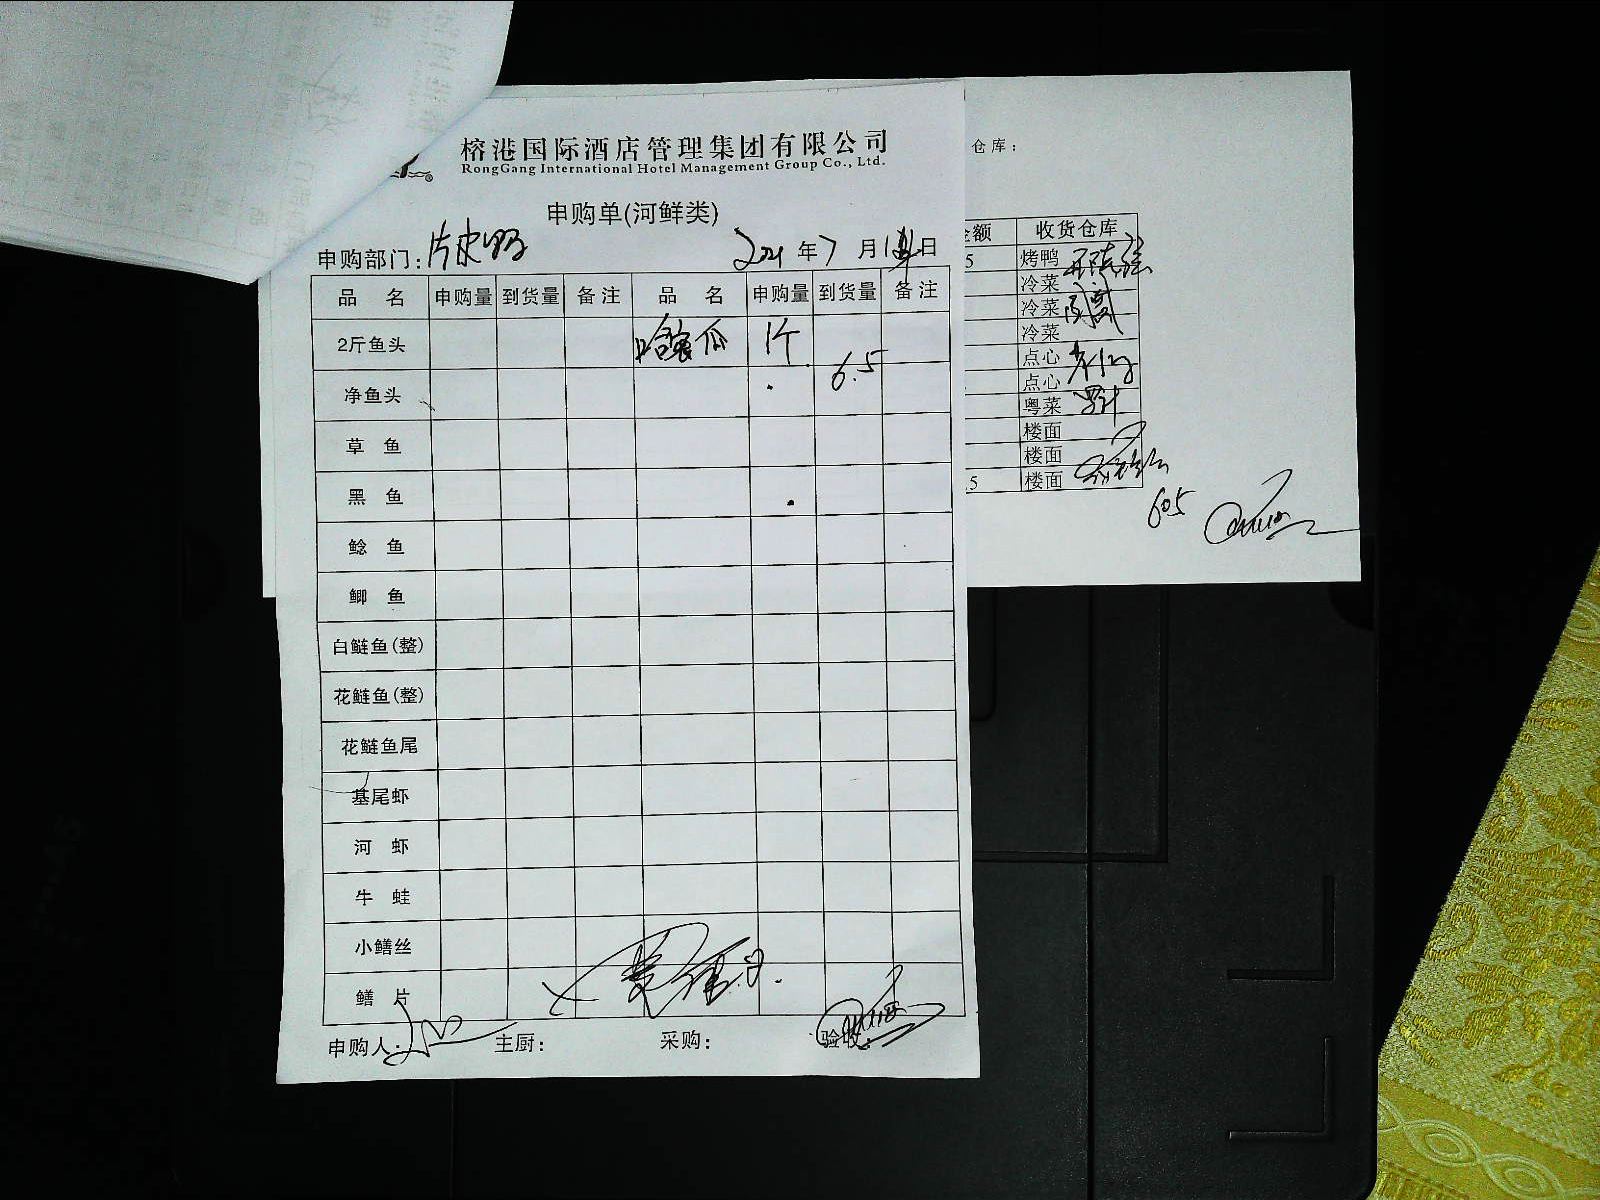 榕港国际酒店管理集团有限公司
RongGang International Hotel Management Group Co., Ltd.
申购单(河鲜类)
申购部门: 2021 年 7 月 日
品 名 申购量 到货量 备注 品 名 申购量 到货量 备注
2斤鱼头 哈密瓜 1个
净鱼头 6.5
草 鱼
黑 鱼
鲶 鱼
鲫 鱼
白鲢鱼(整)
花鲢鱼(整)
花鲢鱼尾
基尾虾
河 虾
牛 蛙
小鳝丝
鳝 片
申购人: 主厨: 采购: 验收:
仓库:
金额 收货仓库
5 烤鸭
冷菜
冷菜
冷菜
点心
点心
粤菜
楼面
楼面
.5 楼面
605